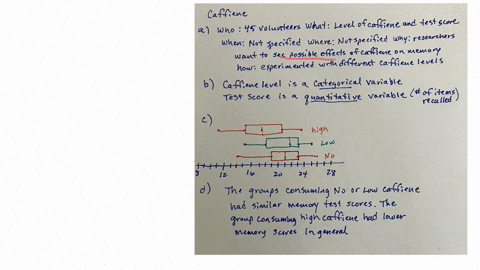 Caffiene
a) Who: 45 volunteers What: Level of caffiene and test score
When: Not specified Where: Not specified Why: researchers
want to see possible effects of caffiene on memory
how: experimented with different caffiene levels
b) Caffiene level is a categorical variable
Test Score is a quantitative variable (# of items
recalled)
c)
high
Low
No
8 12 16 20 24 28
d) The groups consuming No or Low caffiene
had similar memory test scores. The
group consuming high caffiene had lower
memory scores in general